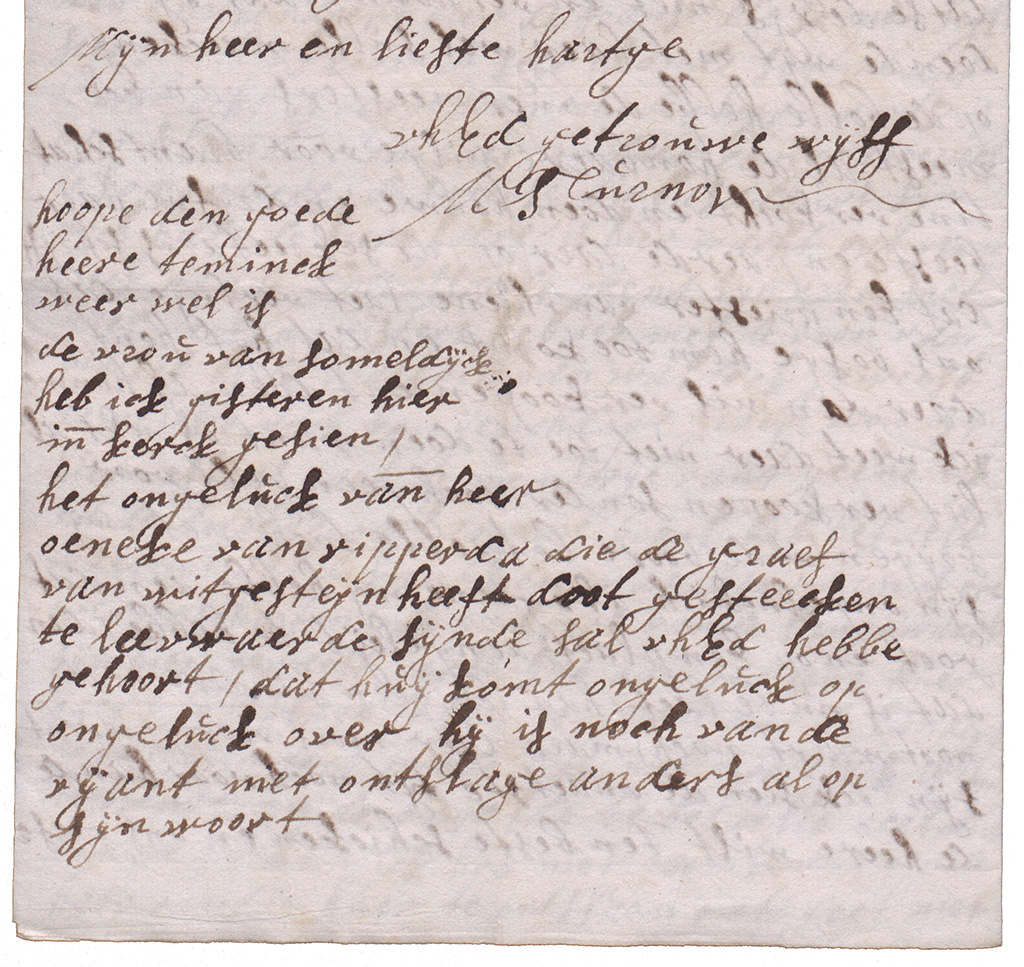 Mÿn heer en liefste hartge
vhEd getrouwe wÿff
M S Turnor
hoope den goede
heere teminck
weer wel is
de vrou van someldÿck
heb ick gisteren hier
in̅ kerck gesien /
het ongeluck van̅ heer
oeneke van ripperda die de graef
van witgesteÿn heeft doot gesteecken
te leewaerde sÿnde sal vhEd hebbe
gehoort / dat huÿ komt ongeluck op
ongeluck over hÿ is noch van de
vÿant met ontslage anders al op
sÿn woort